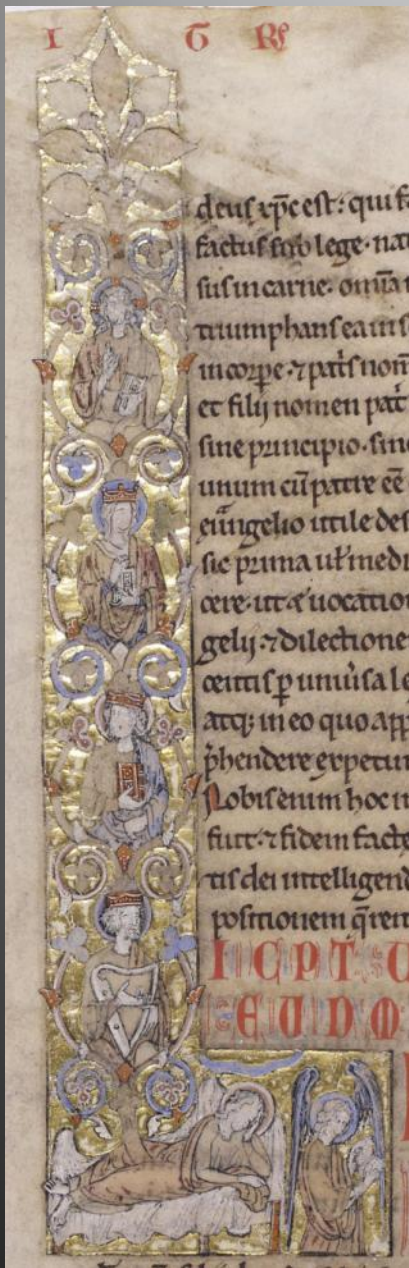 I G R
deus xp̄c est: qui fa
factus sub lege. nat
sus in carne. omīa
triumphans ea in s
in corpe. ⁊ pat̄s nom
et filij nomen pat̄
sine principio. sine
unum cū patre eē
euūgelio utile des
sic prima uł medi
cere. ut ⁊ uocation
gelij ⁊ dilectione
centis p uniūsa le
atq; in eo quo app
p̄hendere expetun
Nobis enim hoc in
fuit. ⁊ fidem facte
tis dei intelligend
positionem q̄ren
I C P T U
E U D M